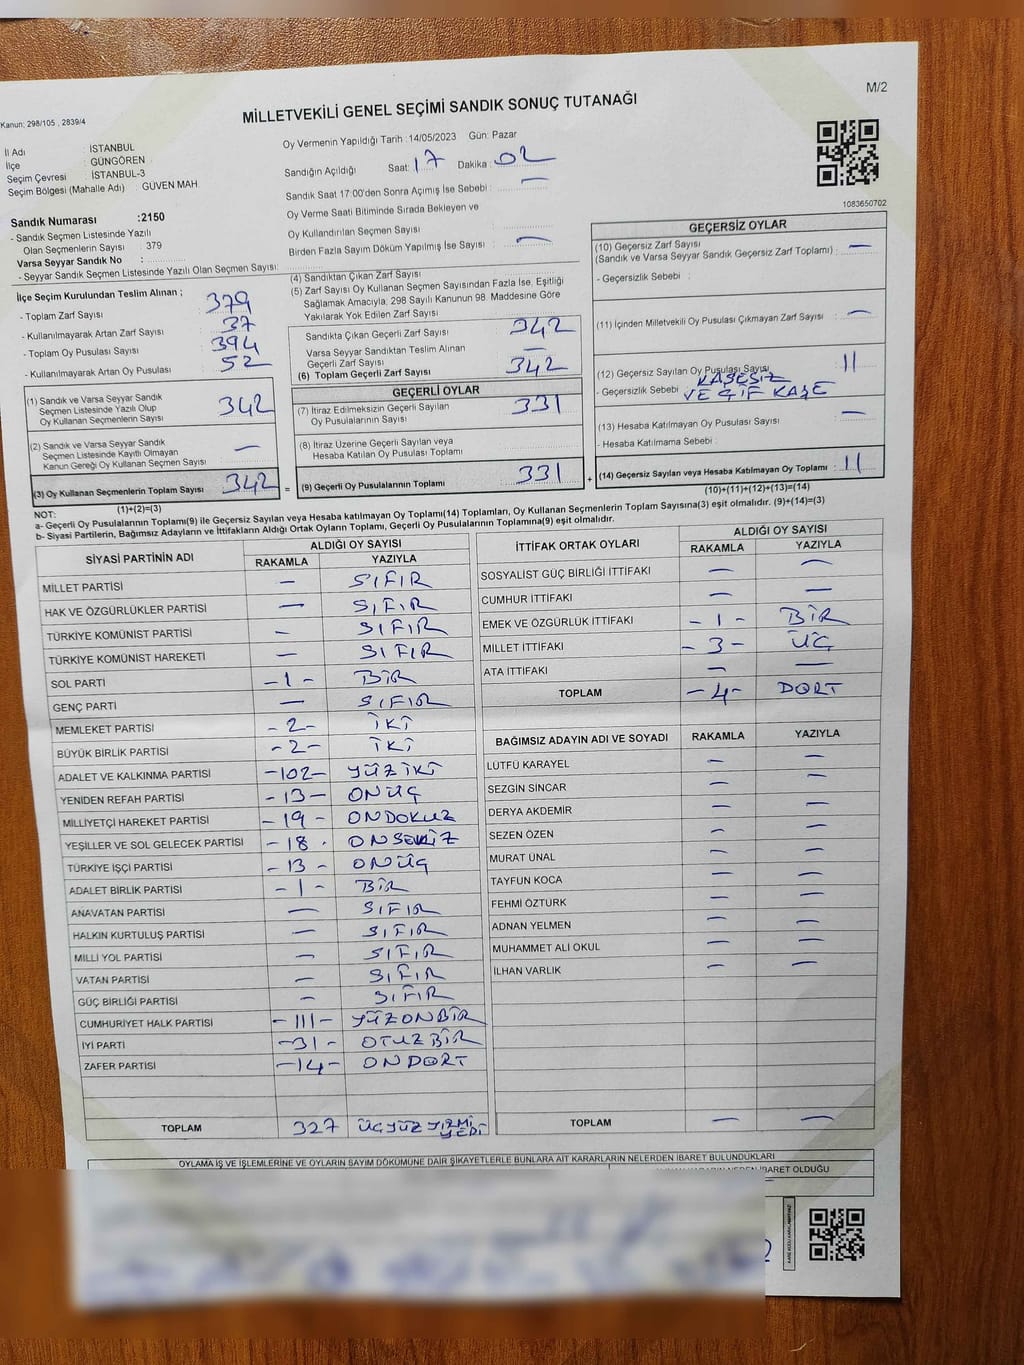 M/2
MİLLETVEKİLİ GENEL SEÇİMİ SANDIK SONUÇ TUTANAĞI
Kanun; 298/105 , 2839/4
İl Adı : İSTANBUL
İlçe : GÜNGÖREN
Seçim Çevresi : İSTANBUL-3
Seçim Bölgesi (Mahalle Adı) : GÜVEN MAH.
Sandık Numarası :2150
- Sandık Seçmen Listesinde Yazılı
Olan Seçmenlerin Sayısı : 379
Varsa Seyyar Sandık No :
- Seyyar Sandık Seçmen Listesinde Yazılı Olan Seçmen Sayısı:
Oy Vermenin Yapıldığı Tarih :14/05/2023 Gün: Pazar
Sandığın Açıldığı Saat: 17 Dakika : 02
Sandık Saat 17:00'den Sonra Açımış İse Sebebi : —
Oy Verme Saati Bitiminde Sırada Bekleyen ve
Oy Kullandırılan Seçmen Sayısı :
Birden Fazla Sayım Döküm Yapılmış İse Sayısı : —
1083650702
İlçe Seçim Kurulundan Teslim Alınan ;
- Toplam Zarf Sayısı : 379
- Kullanılmayarak Artan Zarf Sayısı : 37
- Toplam Oy Pusulası Sayısı : 394
- Kullanılmayarak Artan Oy Pusulası : 52
(1) Sandık ve Varsa Seyyar Sandık
Seçmen Listesinde Yazılı Olup
Oy Kullanan Seçmenlerin Sayısı : 342
(2) Sandık ve Varsa Seyyar Sandık
Seçmen Listesinde Kayıtlı Olmayan
Kanun Gereği Oy Kullanan Seçmen Sayısı : —
(3) Oy Kullanan Seçmenlerin Toplam Sayısı : 342
(1)+(2)=(3)
(4) Sandıktan Çıkan Zarf Sayısı :
(5) Zarf Sayısı Oy Kullanan Seçmen Sayısından Fazla İse, Eşitliği
Sağlamak Amacıyla; 298 Sayılı Kanunun 98. Maddesine Göre
Yakılarak Yok Edilen Zarf Sayısı :
Sandıkta Çıkan Geçerli Zarf Sayısı : 342
Varsa Seyyar Sandıktan Teslim Alınan
Geçerli Zarf Sayısı : —
(6) Toplam Geçerli Zarf Sayısı : 342
GEÇERLİ OYLAR
(7) İtiraz Edilmeksizin Geçerli Sayılan
Oy Pusulalarının Sayısı : 331
(8) İtiraz Üzerine Geçerli Sayılan veya
Hesaba Katılan Oy Pusulası Toplamı :
= (9) Geçerli Oy Pusulalarının Toplamı : 331
GEÇERSİZ OYLAR
(10) Geçersiz Zarf Sayısı
(Sandık ve Varsa Seyyar Sandık Geçersiz Zarf Toplamı) : —
- Geçersizlik Sebebi :
(11) İçinden Milletvekili Oy Pusulası Çıkmayan Zarf Sayısı : —
(12) Geçersiz Sayılan Oy Pusulası Sayısı : 11
- Geçersizlik Sebebi : KAŞESİZ
VE ÇİF KAŞE
(13) Hesaba Katılmayan Oy Pusulası Sayısı : —
- Hesaba Katılmama Sebebi :
+ (14) Geçersiz Sayılan veya Hesaba Katılmayan Oy Toplamı : 11
(10)+(11)+(12)+(13)=(14)
NOT:
a- Geçerli Oy Pusulalarının Toplamı(9) ile Geçersiz Sayılan veya Hesaba katılmayan Oy Toplamı(14) Toplamları, Oy Kullanan Seçmenlerin Toplam Sayısına(3) eşit olmalıdır. (9)+(14)=(3)
b- Siyasi Partilerin, Bağımsız Adayların ve İttifakların Aldığı Ortak Oyların Toplamı, Geçerli Oy Pusulalarının Toplamına(9) eşit olmalıdır.
SİYASİ PARTİNİN ADI ALDIĞI OY SAYISI
RAKAMLA YAZIYLA
MİLLET PARTİSİ — SIFIR
HAK VE ÖZGÜRLÜKLER PARTİSİ — SIFIR
TÜRKİYE KOMÜNİST PARTİSİ — SIFIR
TÜRKİYE KOMÜNİST HAREKETİ — SIFIR
SOL PARTİ -1- BİR
GENÇ PARTİ — SIFIR
MEMLEKET PARTİSİ -2- İKİ
BÜYÜK BİRLİK PARTİSİ -2- İKİ
ADALET VE KALKINMA PARTİSİ -102- YÜZ İKİ
YENİDEN REFAH PARTİSİ -13- ONÜÇ
MİLLİYETÇİ HAREKET PARTİSİ -19- ONDOKUZ
YEŞİLLER VE SOL GELECEK PARTİSİ -18. ONSEKİZ
TÜRKİYE İŞÇİ PARTİSİ -13- ONÜÇ
ADALET BİRLİK PARTİSİ -1- BİR
ANAVATAN PARTİSİ — SIFIR
HALKIN KURTULUŞ PARTİSİ — SIFIR
MİLLİ YOL PARTİSİ — SIFIR
VATAN PARTİSİ — SIFIR
GÜÇ BİRLİĞİ PARTİSİ — SIFIR
CUMHURİYET HALK PARTİSİ -111- YÜZONBİR
İYİ PARTİ -31- OTUZ BİR
ZAFER PARTİSİ -14- ONDÖRT
TOPLAM 327 ÜÇYÜZ YİRMİ
YEDİ
İTTİFAK ORTAK OYLARI ALDIĞI OY SAYISI
RAKAMLA YAZIYLA
SOSYALİST GÜÇ BİRLİĞİ İTTİFAKI — —
CUMHUR İTTİFAKI — —
EMEK VE ÖZGÜRLÜK İTTİFAKI -1- BİR
MİLLET İTTİFAKI -3- ÜÇ
ATA İTTİFAKI — —
TOPLAM -4- DÖRT
BAĞIMSIZ ADAYIN ADI VE SOYADI RAKAMLA YAZIYLA
LÜTFÜ KARAYEL — —
SEZGİN SİNCAR — —
DERYA AKDEMİR — —
SEZEN ÖZEN — —
MURAT ÜNAL — —
TAYFUN KOCA — —
FEHMİ ÖZTÜRK — —
ADNAN YELMEN — —
MUHAMMET ALİ OKUL — —
İLHAN VARLIK — —
TOPLAM — —
OYLAMA İŞ VE İŞLEMLERİNE VE OYLARIN SAYIM DÖKÜMÜNE DAİR ŞİKAYETLERLE BUNLARA AİT KARARLARIN NELERDEN İBARET BULUNDUKLARI
NEDEN İBARET OLDUĞU